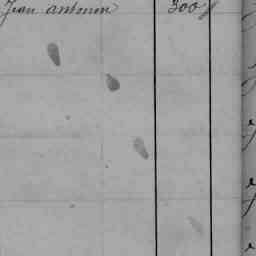 Jean antonin 300